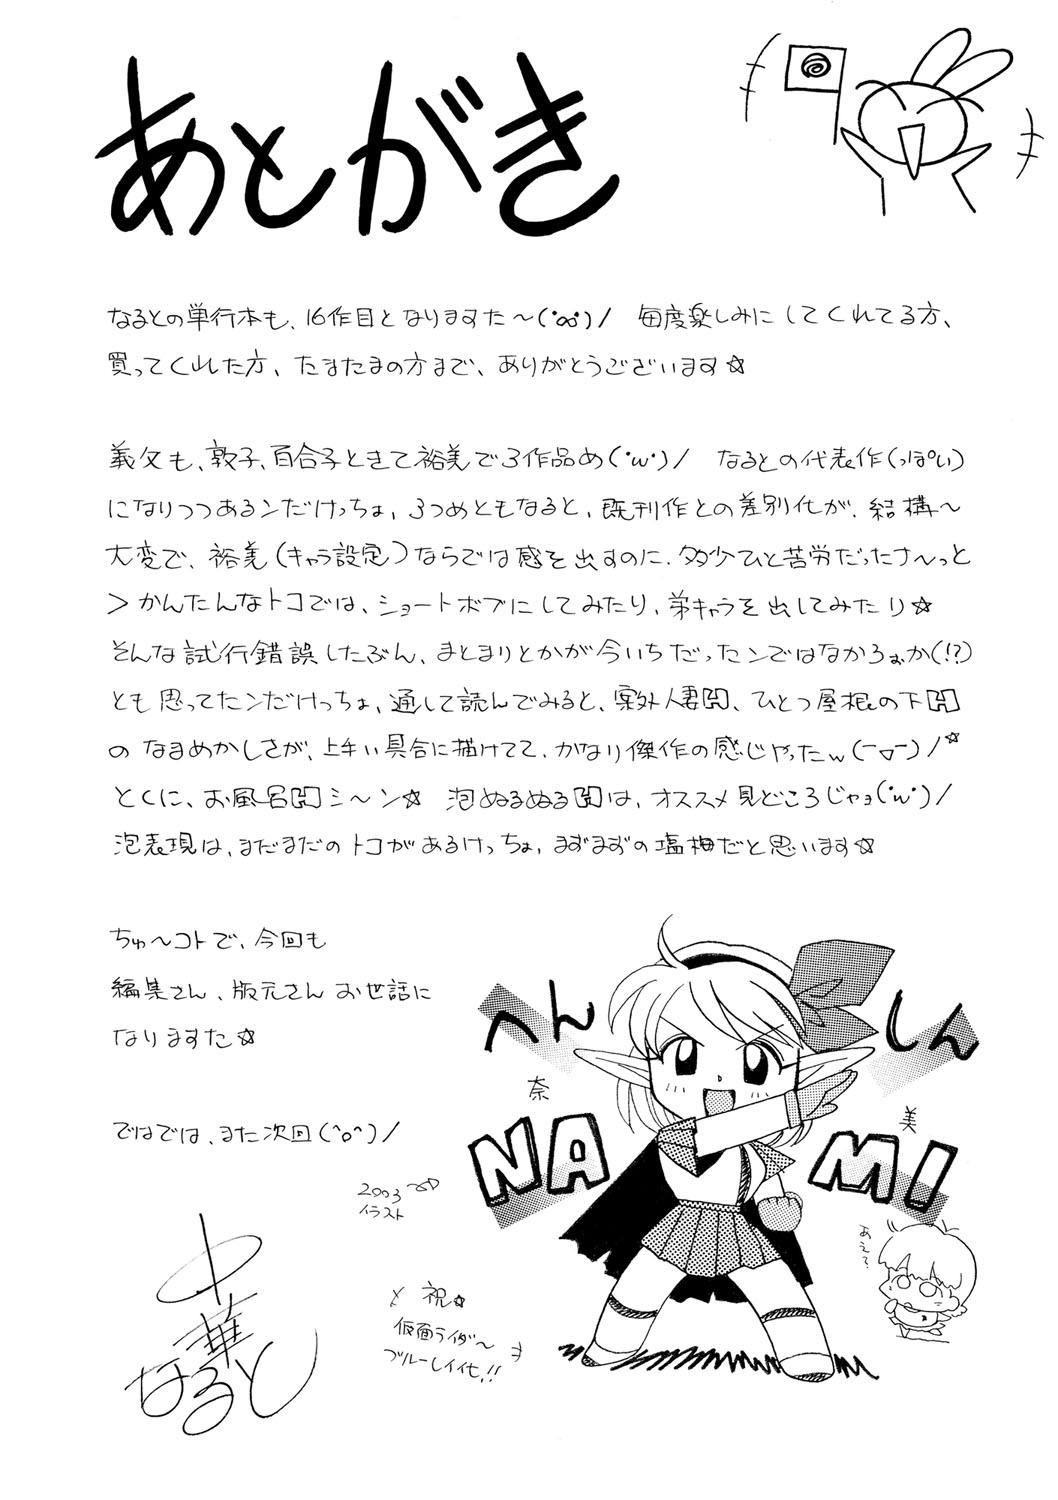 あとがき
なるとの単行本も、16作目となりますた〜(･ω･)/　毎度楽しみにしてくれてる方、
買ってくれた方、たまたまの方まで、ありがとうございます☆
義父も、敦子、百合子ときて裕美で3作品め(･ω･)/　なるとの代表作(っぽい)
になりつつあるンだけっちょ、3つめともなると、既刊作との差別化が、結構〜
大変で、裕美(キャラ設定)ならでは感を出すのに、多少ひと苦労だったナ〜っと
＞かんたんなトコでは、ショートボブにしてみたり、弟キャラを出してみたり☆
そんな試行錯誤したぶん、まとまりとかが今いちだったンではなかろぉか(!?)
とも思ってたンだけっちょ、通して読んでみると、案外人妻H、ひとつ屋根の下H
の なまめかしさが、上手い具合に描けてて、かなり傑作の感じやったw(￣▽￣)/☆
とくに、お風呂Hシ〜ン☆　泡ぬるぬるHは、オススメ見どころじゃョ(･ω･)/
泡表現は、まだまだのトコがあるけっちょ、まずまずの塩梅だと思います☆
ちゅ〜コトで、今回も
編集さん、版元さん お世話に
なりますた☆
ではでは、また次回(^o^)/
へん しん
奈 美
NA MI
2003
イラスト
あえて?
祝☆
仮面ライダ〜
ブルーレイ化!!
中華
なると